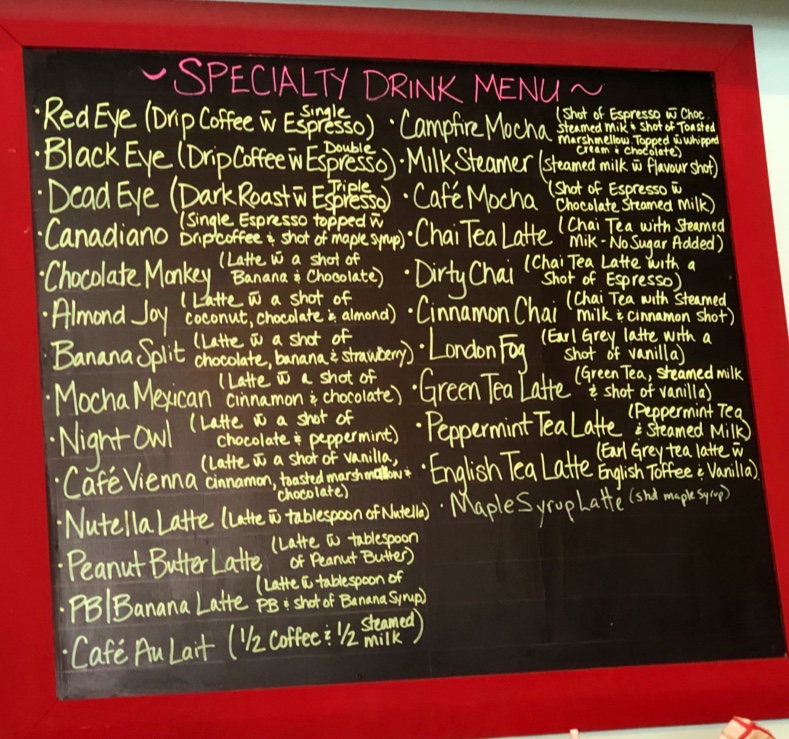 ~ SPECIALTY DRINK MENU ~
· Red Eye (Drip Coffee w̄ Single Espresso)
· Black Eye (Drip Coffee w̄ Double Espresso)
· Dead Eye (Dark Roast w̄ Triple Espresso)
· Canadiano (Single Espresso topped w̄
Dripcoffee & shot of maple syrup)
· Chocolate Monkey (Latte w̄ a shot of
Banana & Chocolate)
· Almond Joy (Latte w̄ a shot of
coconut, chocolate & almond)
· Banana Split (Latte w̄ a shot of
chocolate, banana & strawberry)
· Mocha Mexican (Latte w̄ a shot of
cinnamon & chocolate)
· Night Owl (Latte w̄ a shot of
chocolate & peppermint)
· Café Vienna (Latte w̄ a shot of vanilla,
cinnamon, toasted marshmallow &
chocolate)
· Nutella Latte (Latte w̄ tablespoon of Nutella)
· Peanut Butter Latte (Latte w̄ tablespoon
of Peanut Butter)
· PB/Banana Latte (Latte w̄ tablespoon of
PB & shot of Banana Syrup)
· Café Au Lait (1/2 Coffee & 1/2 steamed
milk)
· Campfire Mocha (Shot of Espresso w̄ Choc.
steamed Milk & Shot of Toasted
Marshmellow. Topped w̄ Whipped
Cream & Chocolate)
· Milk Steamer (steamed milk w̄ flavour shot)
· Café Mocha (Shot of Espresso w̄
Chocolate Steamed Milk)
· Chai Tea Latte (Chai Tea with Steamed
Milk - No Sugar Added)
· Dirty Chai (Chai Tea Latte with a
Shot of Espresso)
· Cinnamon Chai (Chai Tea with Steamed
milk & cinnamon shot)
· London Fog (Earl Grey latte with a
shot of vanilla)
· Green Tea Latte (Green Tea, steamed milk
& shot of vanilla)
· Peppermint Tea Latte (Peppermint Tea
& Steamed Milk)
· English Tea Latte (Earl Grey tea latte w̄
English Toffee & Vanilla)
· Maple Syrup Latte (maple syrup)